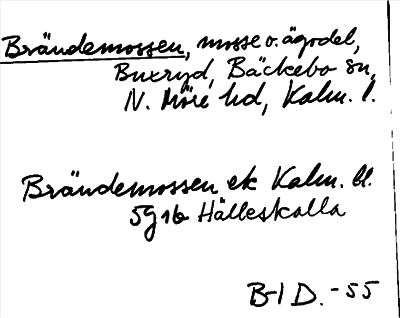 Brändemossen, mosse o. ägodel,
Buxryd, Bäckebo sn,
N. Möre hd, Kalm. l.
Brändemossen ek Kalm. bl.
5g 1b Hälleskalla
B-I D. -55